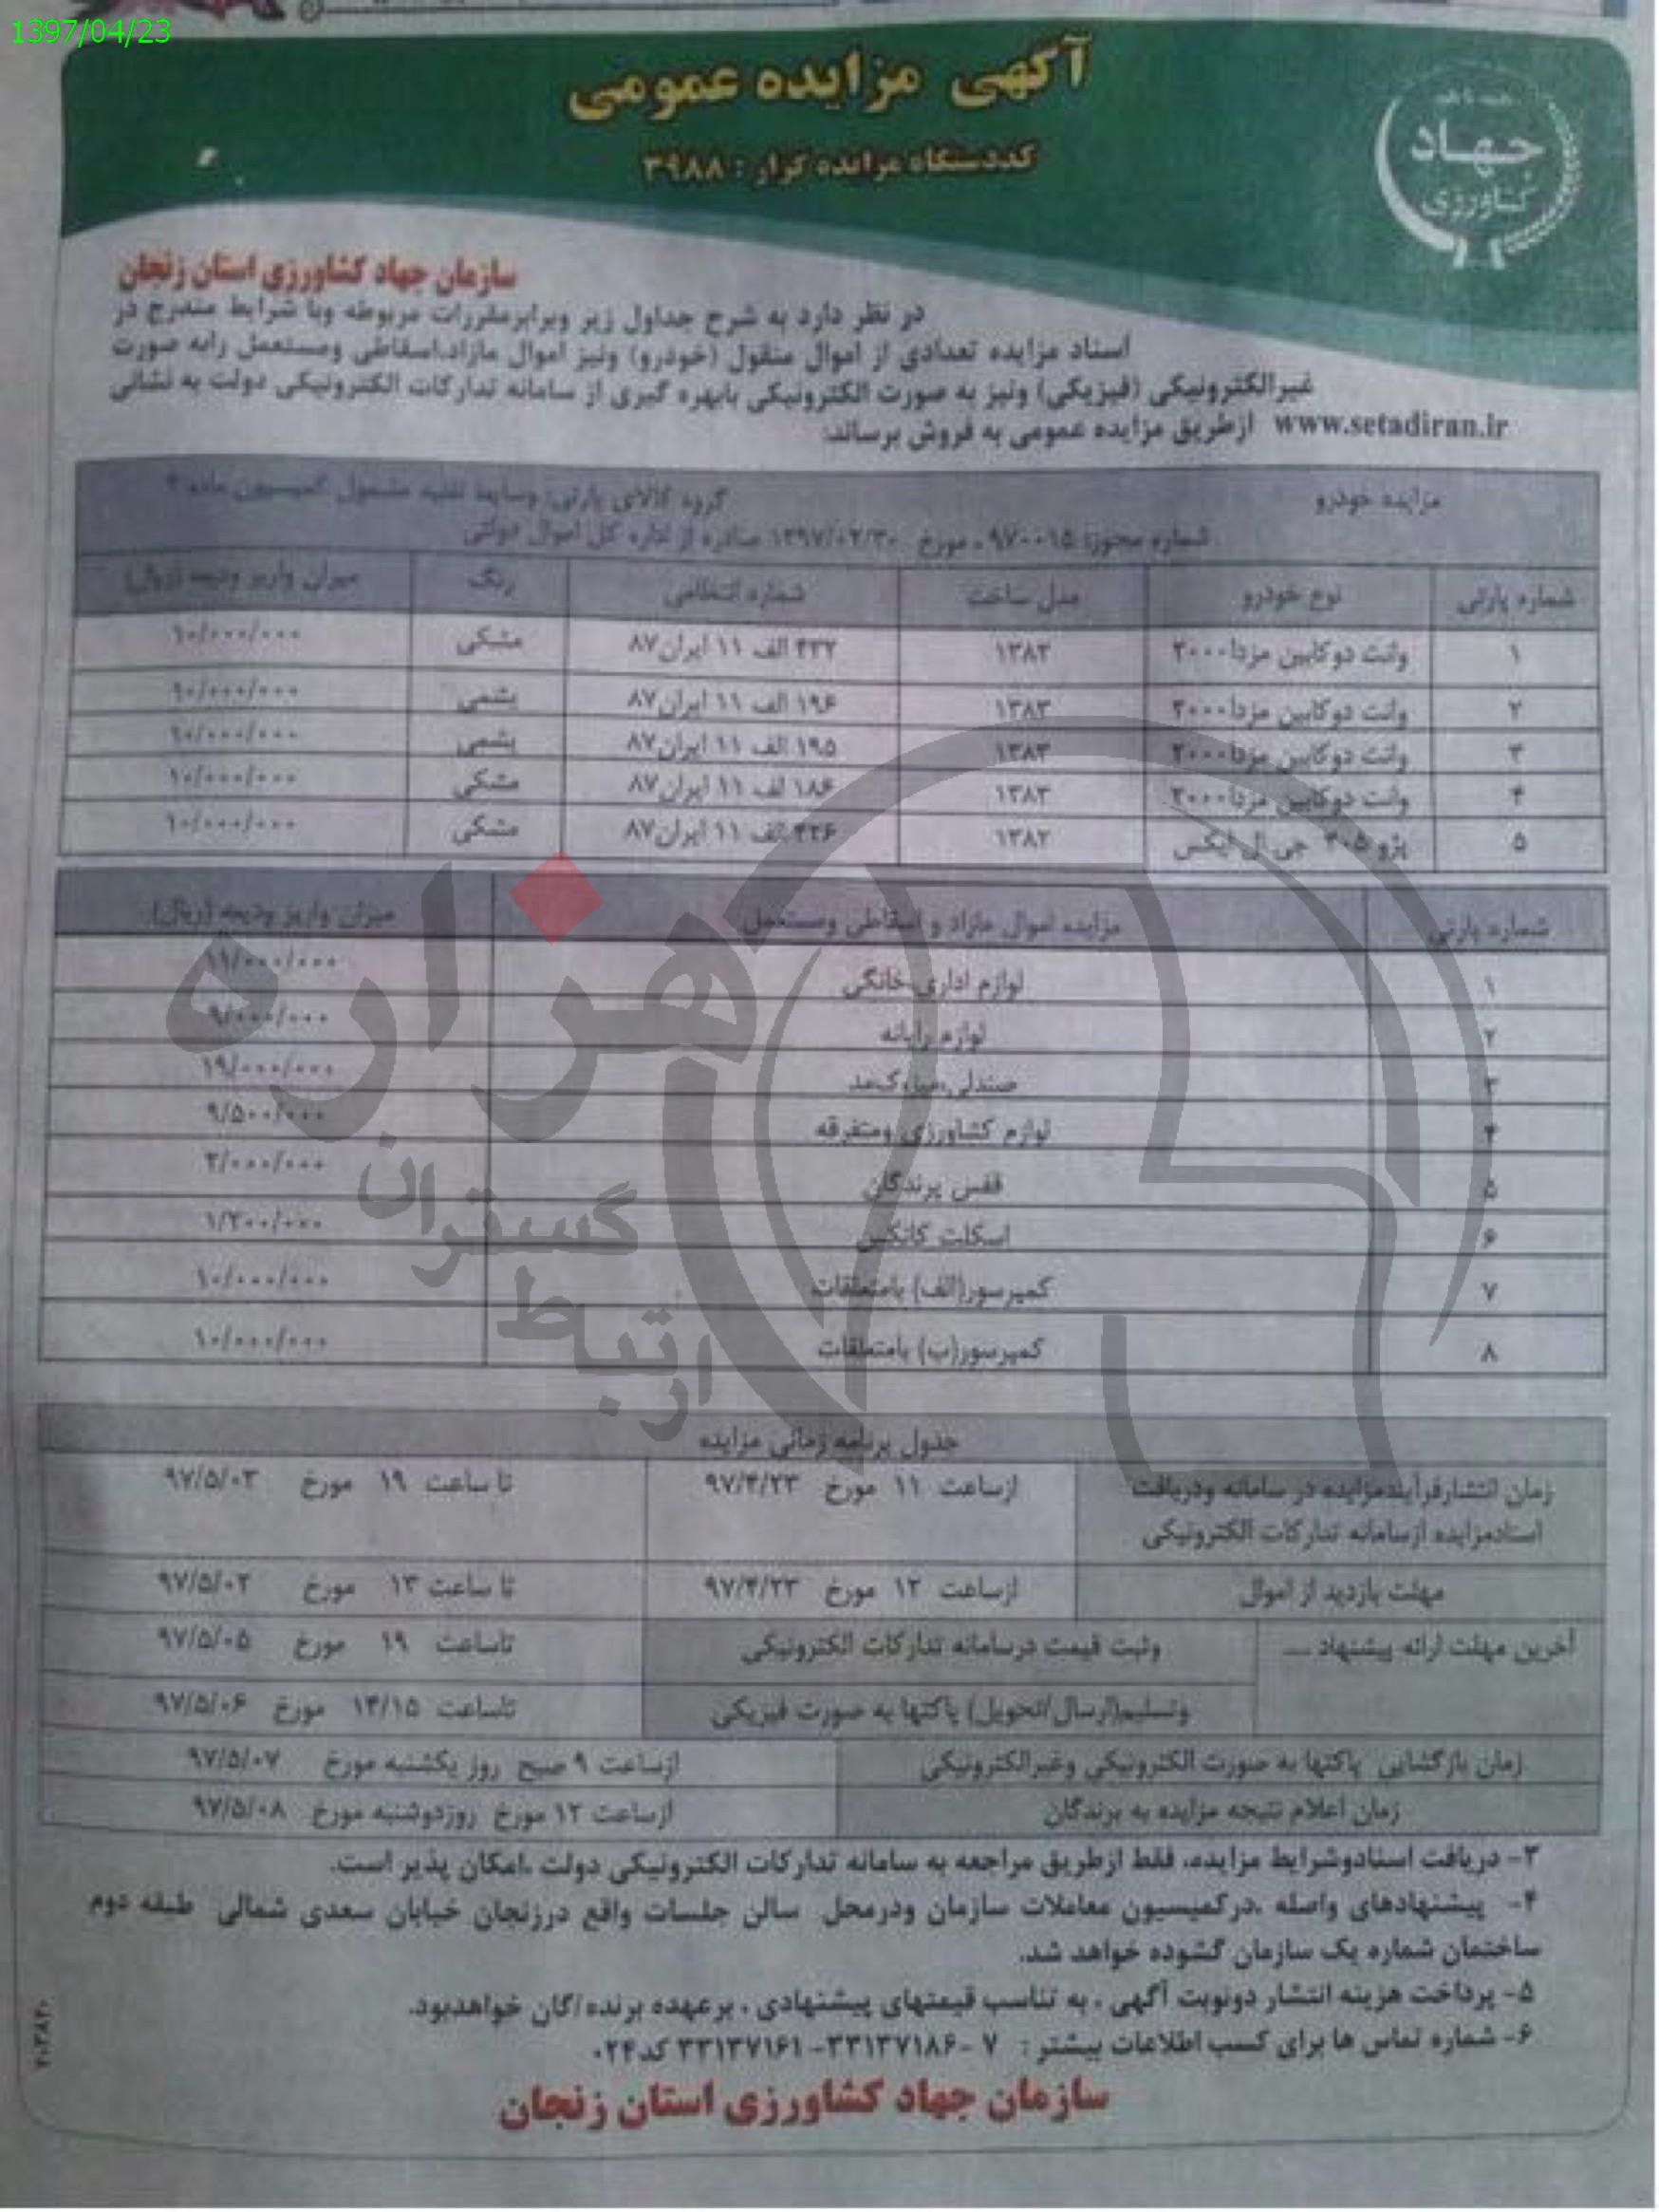 1397/04/23
آگهی مزایده عمومی
کددستگاه مزایده گزار : ۳۹۸۸
جهاد
کشاورزی
سازمان جهاد کشاورزی استان زنجان
در نظر دارد به شرح جداول زیر وبرابرمقررات مربوطه وبا شرایط مندرج در
اسناد مزایده تعدادی از اموال منقول (خودرو) ونیز اموال مازاد،اسقاطی ومستعمل رابه صورت
غیرالکترونیکی (فیزیکی) ونیز به صورت الکترونیکی بابهره گیری از سامانه تدارکات الکترونیکی دولت به نشانی
www.setadiran.ir ازطریق مزایده عمومی به فروش برساند:
مزایده خودرو گروه کالای پارتی: وسایط نقلیه مشمول کمیسیون ماده ۲
شماره مجوز: ۹۷۰۰۱۵ ، مورخ ۱۳۹۷/۰۲/۳۰ صادره از اداره کل اموال دولتی
شماره پارتی نوع خودرو مدل ساخت شماره انتظامی رنگ میزان واریز ودیعه (ریال)
۱ وانت دوکابین مزدا۲۰۰۰ ۱۳۸۳ ۴۳۲ الف ۱۱ ایران۸۷ مشکی ۱۰/۰۰۰/۰۰۰
۲ وانت دوکابین مزدا۲۰۰۰ ۱۳۸۳ ۱۹۶ الف ۱۱ ایران۸۷ یشمی ۱۰/۰۰۰/۰۰۰
۳ وانت دوکابین مزدا۲۰۰۰ ۱۳۸۳ ۱۹۵ الف ۱۱ ایران۸۷ یشمی ۱۰/۰۰۰/۰۰۰
۴ وانت دوکابین مزدا۲۰۰۰ ۱۳۸۳ ۱۸۶ لف ۱۱ ایران۸۷ مشکی ۱۰/۰۰۰/۰۰۰
۵ پژو ۴۰۵ جی ال ایکس ۱۳۸۲ الف ۱۱ ایران۸۷ مشکی ۱۰/۰۰۰/۰۰۰
شماره پارتی مزایده اموال مازاد و اسقاطی ومستعمل میزان واریز ودیعه (ریال)
۱ لوازم اداری،خانگی ۱۱/۰۰۰/۰۰۰
۲ لوازم رایانه ۹/۰۰۰/۰۰۰
۳ صندلی،مبل،کمد ۱۹/۰۰۰/۰۰۰
۴ لوازم کشاورزی ومتفرقه ۹/۵۰۰/۰۰۰
۵ قفس پرندگان ۲/۰۰۰/۰۰۰
۶ اسکلت کانکس ۱/۲۰۰/۰۰۰
۷ کمپرسور(الف) بامتعلقات ۱۰/۰۰۰/۰۰۰
۸ کمپرسور(ب) بامتعلقات ۱۰/۰۰۰/۰۰۰
هزاره
ارتباط گستران
جدول برنامه زمانی مزایده
زمان انتشارفرآیندمزایده در سامانه ودریافت ازساعت ۱۱ مورخ ۹۷/۴/۲۳ تا ساعت ۱۹ مورخ ۹۷/۵/۰۳
اسنادمزایده ازسامانه تدارکات الکترونیکی
مهلت بازدید از اموال ازساعت ۱۲ مورخ ۹۷/۴/۲۳ تا ساعت ۱۳ مورخ ۹۷/۵/۰۲
آخرین مهلت ارائه پیشنهاد .... وثبت قیمت درسامانه تدارکات الکترونیکی تاساعت ۱۹ مورخ ۹۷/۵/۰۵
وتسلیم(ارسال/تحویل) پاکتها به صورت فیزیکی تاساعت ۱۴/۱۵ مورخ ۹۷/۵/۰۶
زمان بازگشایی پاکتها به صورت الکترونیکی وغیرالکترونیکی ازساعت ۹ صبح روز یکشنبه مورخ ۹۷/۵/۰۷
زمان اعلام نتیجه مزایده به برندگان ازساعت ۱۲ مورخ روزدوشنبه مورخ ۹۷/۵/۰۸
۳- دریافت اسنادوشرایط مزایده، فقط ازطریق مراجعه به سامانه تدارکات الکترونیکی دولت ،امکان پذیر است.
۴- پیشنهادهای واصله ،درکمیسیون معاملات سازمان ودرمحل سالن جلسات واقع درزنجان خیابان سعدی شمالی طبقه دوم
ساختمان شماره یک سازمان گشوده خواهد شد.
۵- پرداخت هزینه انتشار دونوبت آگهی ، به تناسب قیمتهای پیشنهادی ، برعهده برنده/گان خواهدبود.
۶- شماره تماس ها برای کسب اطلاعات بیشتر : ۷ -۳۳۱۳۷۱۸۶- ۳۳۱۳۷۱۶۱ کد۰۲۴
سازمان جهاد کشاورزی استان زنجان